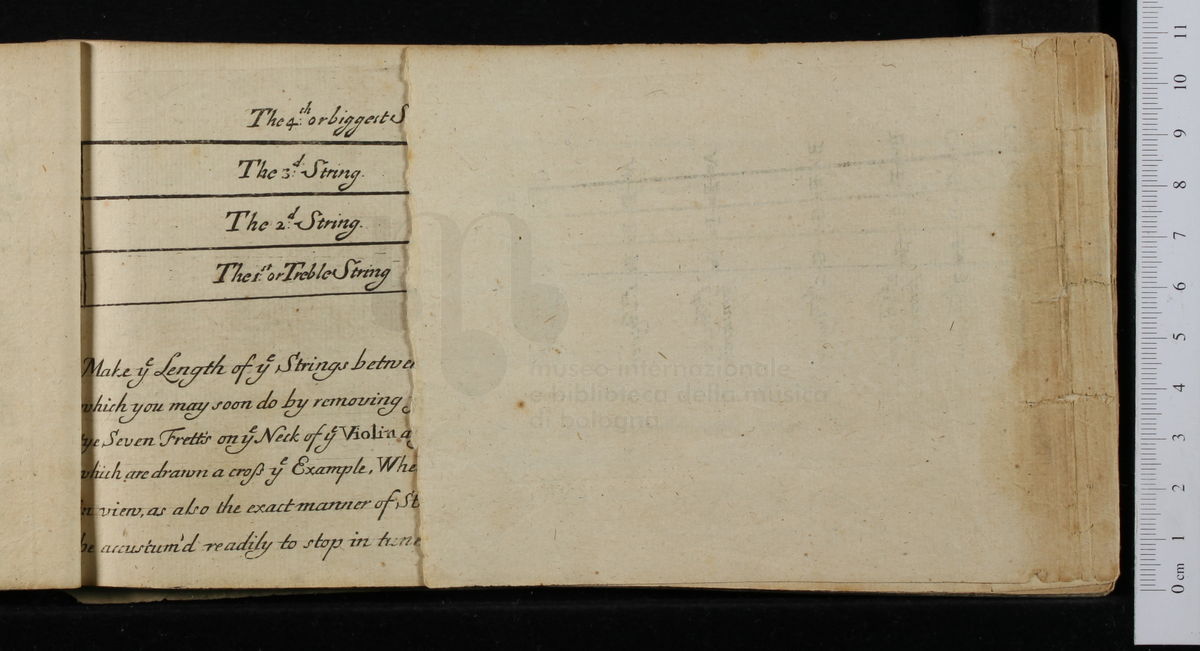 The 4th: or biggest S
The 3d: String.
The 2d: String.
The 1st: or Treble String
Make ye Length of ye Strings betwe
which you may soon do by removing
tye Seven Frett's on ye Neck of ye Violin a
which are drawn a cross ye Example, Whe
in view, as also the exact manner of St
be accustum'd readily to stop in tune
museo internazionale
e biblibteca della musica
di bologna
0 cm 1 2 3 4 5 6 7 8 9 10 11